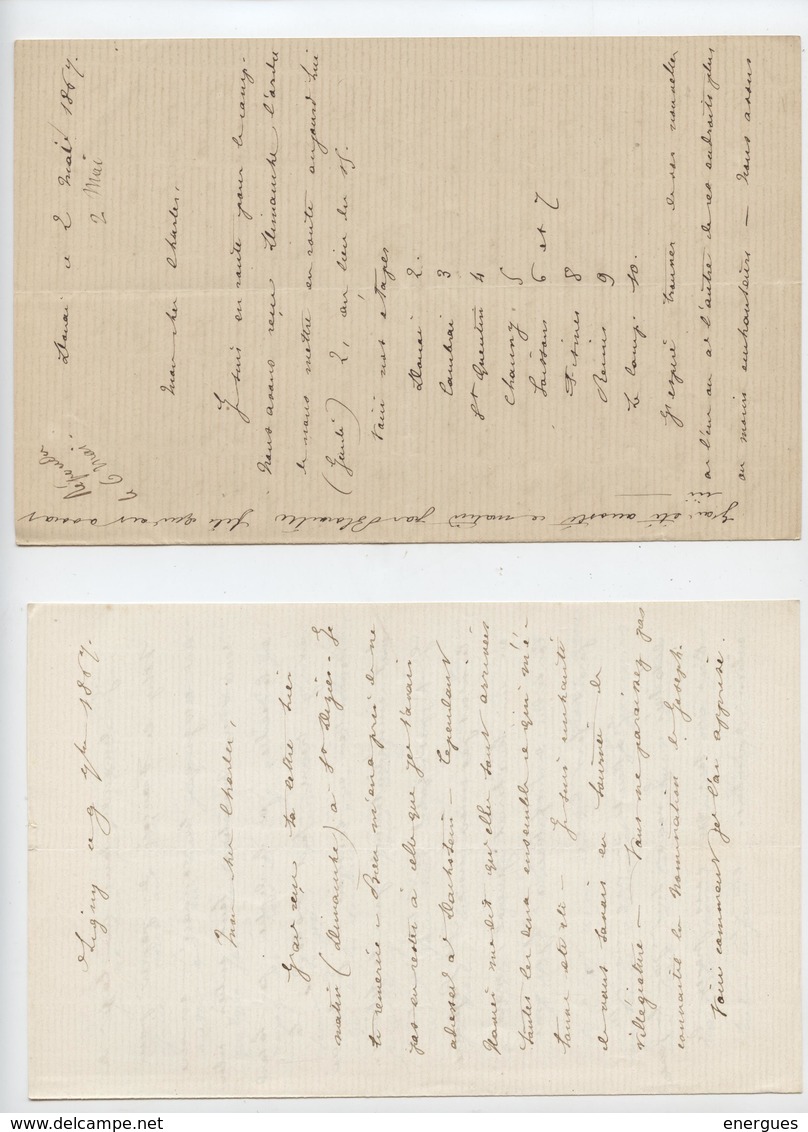 Douai ce 2 Mai 1867.
2 Mai
Répondu
6 mai
Mon cher Charles,
Je suis en route pour le camp -
Nous avons reçu Dimanche l'ordre
de nous mettre en route aujourd'hui
(Jeudi) 2, au lieu du 15.
Voici nos étapes
Douai 2.
Cambrai 3
St Quentin 4
Chauny. 5
Soissons 6 et 7
Fismes 8
Reims 9
Le Camp. 10.
J'espère trouver de vos nouvelles
à l'un ou à l'autre de ces endroits plus
ou moins enchanteurs - Nous avons
J'ai été assisté ce matin par
Ligny ce 9 7bre 1867.
Mon cher Charles,
J'ai reçu ta lettre hier
matin (Dimanche) à St Dizier - Je
te remercie
pas en rester à celle que je t'avais
adressée à Dachstein - Cependant
me dit qu'elles sont arrivées
toutes les deux ensemble ce qui m'é-
tonne - Je suis enchanté
de vous savoir en tournée de
villégiature - Vous ne paraissez pas
connaître la nomination de Joseph.
Voici comment je l'ai apprise.
energues